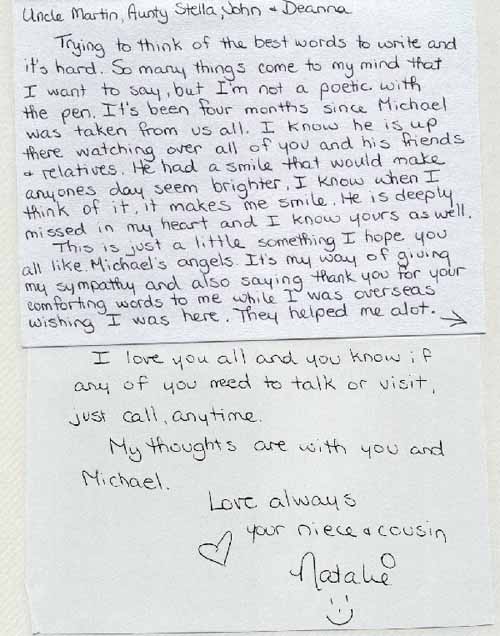 Uncle Martin, Aunty Stella, John & Deanna
Trying to think of the best words to write and
it's hard. So many things come to my mind that
I want to say, but I'm not a poetic with
the pen. It's been four months since Michael
was taken from us all. I know he is up
there watching over all of you and his friends
& relatives. He had a smile that would make
anyones day seem brighter. I know when I
think of it, it makes me smile. He is deeply
missed in my heart and I know yours as well.
This is just a little something I hope you
all like. Michael's angels. It's my way of giving
my sympathy and also saying thank you for your
comforting words to me while I was overseas
wishing I was here. They helped me alot. →
I love you all and you know if
any of you need to talk or visit,
just call, anytime.
My thoughts are with you and
Michael.
Love always
your niece & cousin
Natalie